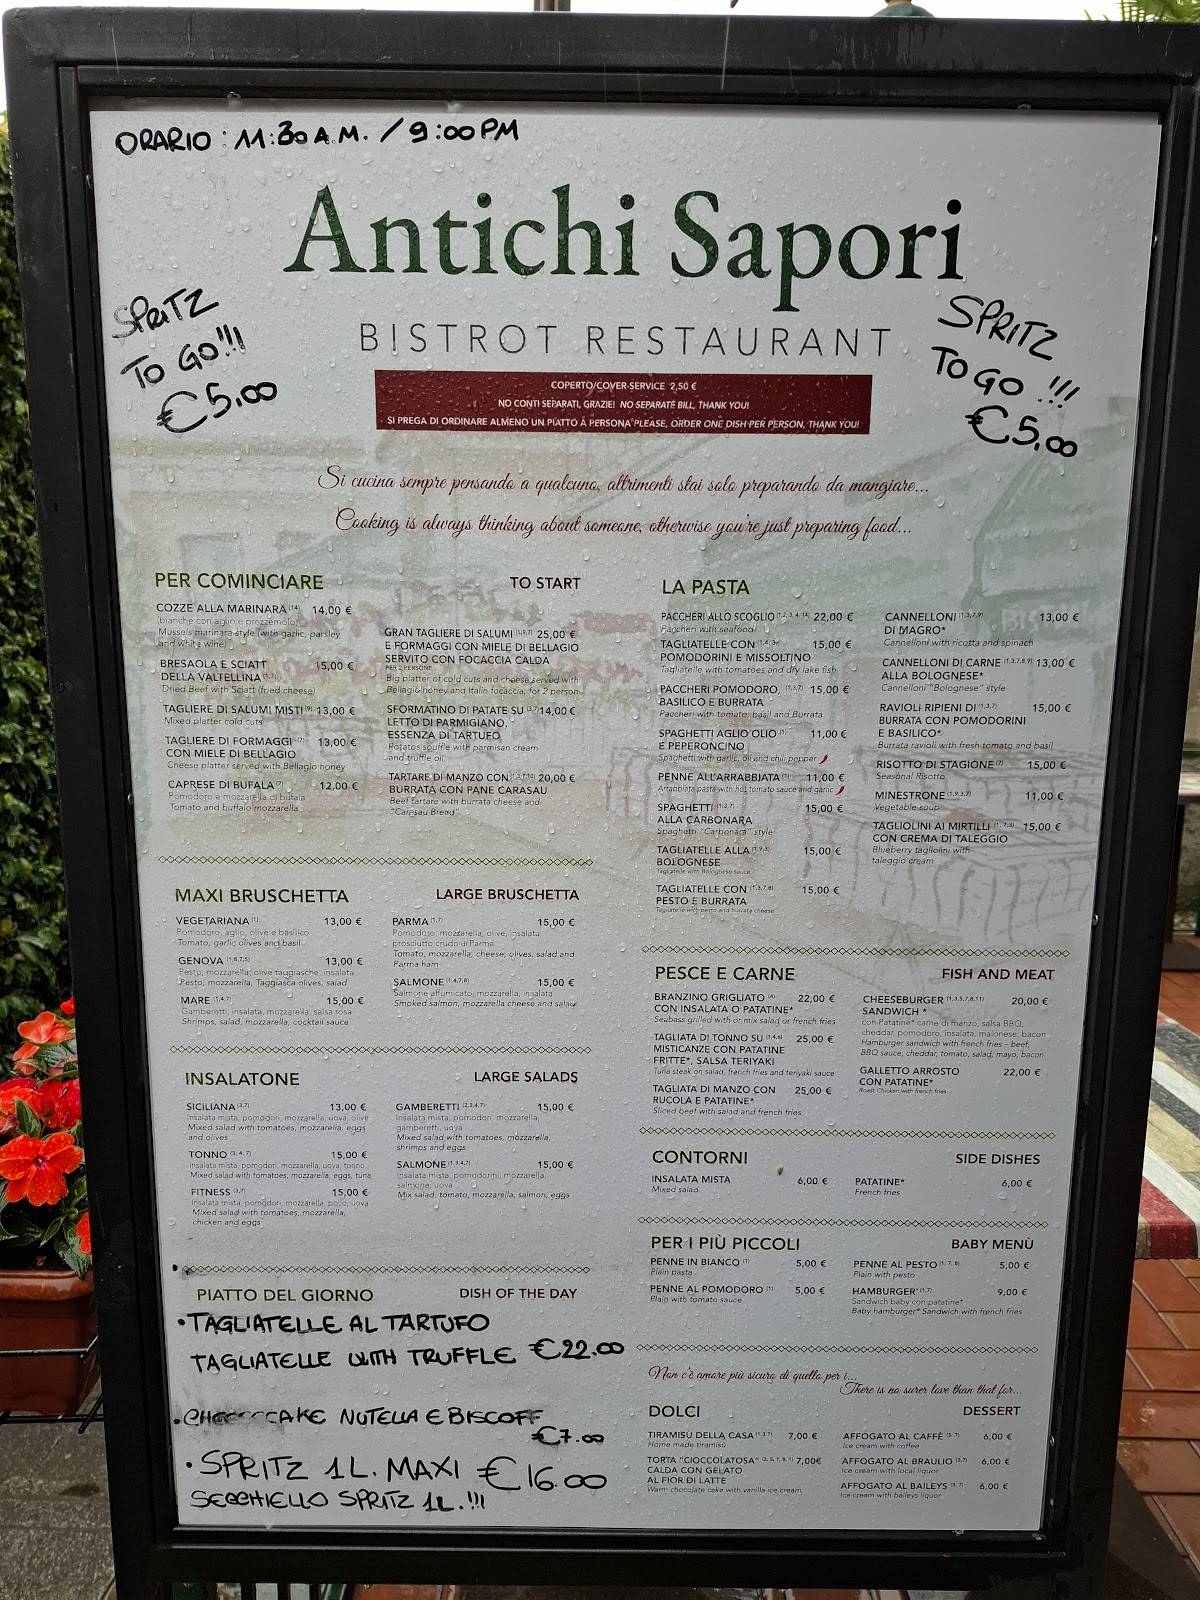 ORARIO : 11:30 A.M. / 9:00 PM
Antichi Sapori
BISTROT RESTAURANT
SPRITZ
TO GO!!!
€5,00
SPRITZ
TO GO !!!
€5,00
COPERTO/COVER-SERVICE 2,50 €
NO CONTI SEPARATI, GRAZIE! NO SEPARATE BILL, THANK YOU!
SI PREGA DI ORDINARE ALMENO UN PIATTO A PERSONA PLEASE, ORDER ONE DISH PER PERSON, THANK YOU!
Si cucina sempre pensando a qualcuno, altrimenti stai solo preparando da mangiare...
Cooking is always thinking about someone, otherwise you're just preparing food...
PER COMINCIARE TO START
COZZE ALLA MARINARA (14) 14,00 €
(bianche con aglio e prezzemolo)
Mussels marinara style (with garlic, parsley
and white wine)
BRESAOLA E SCIATT 15,00 €
DELLA VALTELLINA (1,7)
Dried Beef with Sciatt (fried cheese)
TAGLIERE DI SALUMI MISTI (9) 13,00 €
Mixed platter cold cuts
TAGLIERE DI FORMAGGI (7) 13,00 €
CON MIELE DI BELLAGIO
Cheese platter served with Bellagio honey
CAPRESE DI BUFALA (7) 12,00 €
Pomodoro e mozzarella di bufala
Tomato and buffalo mozzarella
GRAN TAGLIERE DI SALUMI (1,9,7) 25,00 €
E FORMAGGI CON MIELE DI BELLAGIO
SERVITO CON FOCACCIA CALDA
PER 2 PERSONE
Big platter of cold cuts and cheese served with
Bellagio honey and Italin focaccia, for 2 person
SFORMATINO DI PATATE SU (3,7) 14,00 €
LETTO DI PARMIGIANO,
ESSENZA DI TARTUFO
Potatos souffle with parmisan cream
and truffle oil
TARTARE DI MANZO CON 20,00 €
BURRATA CON PANE CARASAU
Beef tartare with burrata cheese and
"Carasau Bread"
MAXI BRUSCHETTA LARGE BRUSCHETTA
VEGETARIANA (1) 13,00 €
Pomodoro, aglio, olive e basilico
Tomato, garlic olives and basil
GENOVA (1,8,7,5) 13,00 €
Pesto, mozzarella, olive taugiasche, insalata
Pesto, mozzarella, Taggiasca olives, salad
MARE (1,4,7) 15,00 €
Gamberetti, insalata, mozzarella, salsa rosa
Shrimps, salad, mozzarella, cocktail sauce
PARMA (1,7) 15,00 €
Pomodoro, mozzarella, olive, insalata,
prosciutto crudo di Parma
Tomato, mozzarella, cheese, olives, salad and
Parma ham
SALMONE (1,4,7,8) 15,00 €
Salmone affumicato, mozzarella, insalata
Smoked salmon, mozzarella cheese and salau
INSALATONE LARGE SALADS
SICILIANA (3,7) 13,00 €
Insalata mista, pomodori, mozzarella, uova, olive
Mixed salad with tomatoes, mozzarella, eggs
and olives
TONNO (3, 4, 7) 15,00 €
Insalata mista, pomodori, mozzarella, uova, tonno
Mixed salad with tomatoes, mozzarella, eggs, tuna
FITNESS (3,7) 15,00 €
Insalata mista, pomodori, mozzarella, pollo, uova
Mixed salad with tomatoes, mozzarella,
chicken and eggs
GAMBERETTI (2,3,4,7) 15,00 €
Insalata mista, pomodori, mozzarella,
gamberetti, uova
Mixed salad with tomatoes, mozzarella,
shrimps and eggs
SALMONE (1,3,4,7) 15,00 €
Insalata mista, pomodorini, mozzarella,
salmone, uova
Mix salad, tomato, mozzarella, salmon, eggs
PIATTO DEL GIORNO DISH OF THE DAY
• TAGLIATELLE AL TARTUFO
TAGLIATELLE WITH TRUFFLE €22.00
• CHEESECAKE NUTELLA E BISCOFF
€7.00
• SPRITZ 1L. MAXI €16.00
SECCHIELLO SPRITZ 1L.!!!
LA PASTA
PACCHERI ALLO SCOGLIO (1,2,3,4,14) 22,00 €
Paccheri with seafood
TAGLIATELLE CON 15,00 €
POMODORINI E MISSOLTINO
Tagliatelle with tomatoes and dry lake fish
PACCHERI POMODORO, (1,3,7) 15,00 €
BASILICO E BURRATA
Paccheri with tomato, basil and Burrata
SPAGHETTI AGLIO OLIO (1) 11,00 €
E PEPERONCINO
Spaghetti with garlic, oil and chili pepper
PENNE ALL'ARRABBIATA (1) 11,00 €
Arrabbiata pasta with hot tomato sauce and garlic
SPAGHETTI (1,3,7) 15,00 €
ALLA CARBONARA
Spaghetti "Carbonara" style
TAGLIATELLE ALLA (1,9,3) 15,00 €
BOLOGNESE
Tagliatelle with Bolognese sauce
TAGLIATELLE CON (1,3,7,8) 15,00 €
PESTO E BURRATA
Tagliatelle with pesto and burrata cheese
CANNELLONI (1,3,7,9) 13,00 €
DI MAGRO*
Cannelloni with ricotta and spinach
CANNELLONI DI CARNE (1,3,7,8,9) 13,00 €
ALLA BOLOGNESE*
Cannelloni "Bolognese" style
RAVIOLI RIPIENI DI (1,3,7) 15,00 €
BURRATA CON POMODORINI
E BASILICO*
Burrata ravioli with fresh tomato and basil
RISOTTO DI STAGIONE (7) 15,00 €
Seasonal Risotto
MINESTRONE (1,9,3,7) 11,00 €
Vegetable soup
TAGLIOLINI AI MIRTILLI (1, 7,3) 15,00 €
CON CREMA DI TALEGGIO
Blueberry tagliolini with
taleggio cream
PESCE E CARNE FISH AND MEAT
BRANZINO GRIGLIATO (4) 22,00 €
CON INSALATA O PATATINE*
Seabass grilled with or mix salad or french fries
TAGLIATA DI TONNO SU (1,4,6) 25,00 €
MISTICANZE CON PATATINE
FRITTE*, SALSA TERIYAKI
Tuna steak on salad, french fries and teriyaki sauce
TAGLIATA DI MANZO CON 25,00 €
RUCOLA E PATATINE*
Sliced beef with salad and french fries
CHEESEBURGER (1,3,5,7,8,11) 20,00 €
SANDWICH *
con Patatine* carne di manzo, salsa BBQ,
cheddar, pomodoro, insalata, maionese, bacon
Hamburger sandwich with french fries - beef,
BBQ sauce, cheddar, tomato, salad, mayo, bacon
GALLETTO ARROSTO 22,00 €
CON PATATINE*
Roast Chicken with french fries
CONTORNI SIDE DISHES
INSALATA MISTA 6,00 €
Mixed salad
PATATINE* 6,00 €
French fries
PER I PIÙ PICCOLI BABY MENÙ
PENNE IN BIANCO (1) 5,00 €
Plain pasta
PENNE AL POMODORO (1) 5,00 €
Plain with tomato sauce
PENNE AL PESTO (1, 7, 8) 5,00 €
Plain with pesto
HAMBURGER* (1,7) 9,00 €
Sandwich baby con patatine*
Baby hamburger* Sandwich with french fries
Non c'è amore più sicuro di quello per i...
There is no surer love than that for...
DOLCI DESSERT
TIRAMISÙ DELLA CASA (1,3,7) 7,00 €
Home made tiramisù
TORTA "CIOCCOLATOSA" (3, 5, 7, 8, 1) 7,00€
CALDA CON GELATO
AL FIOR DI LATTE
Warm chocolate cake with vanilla ice cream
AFFOGATO AL CAFFÈ (3, 7) 6,00 €
Ice cream with coffee
AFFOGATO AL BRAULIO (3,7) 6,00 €
Ice cream with local liquor
AFFOGATO AL BAILEYS (3, 7) 6,00 €
Ice cream with baileys liquor